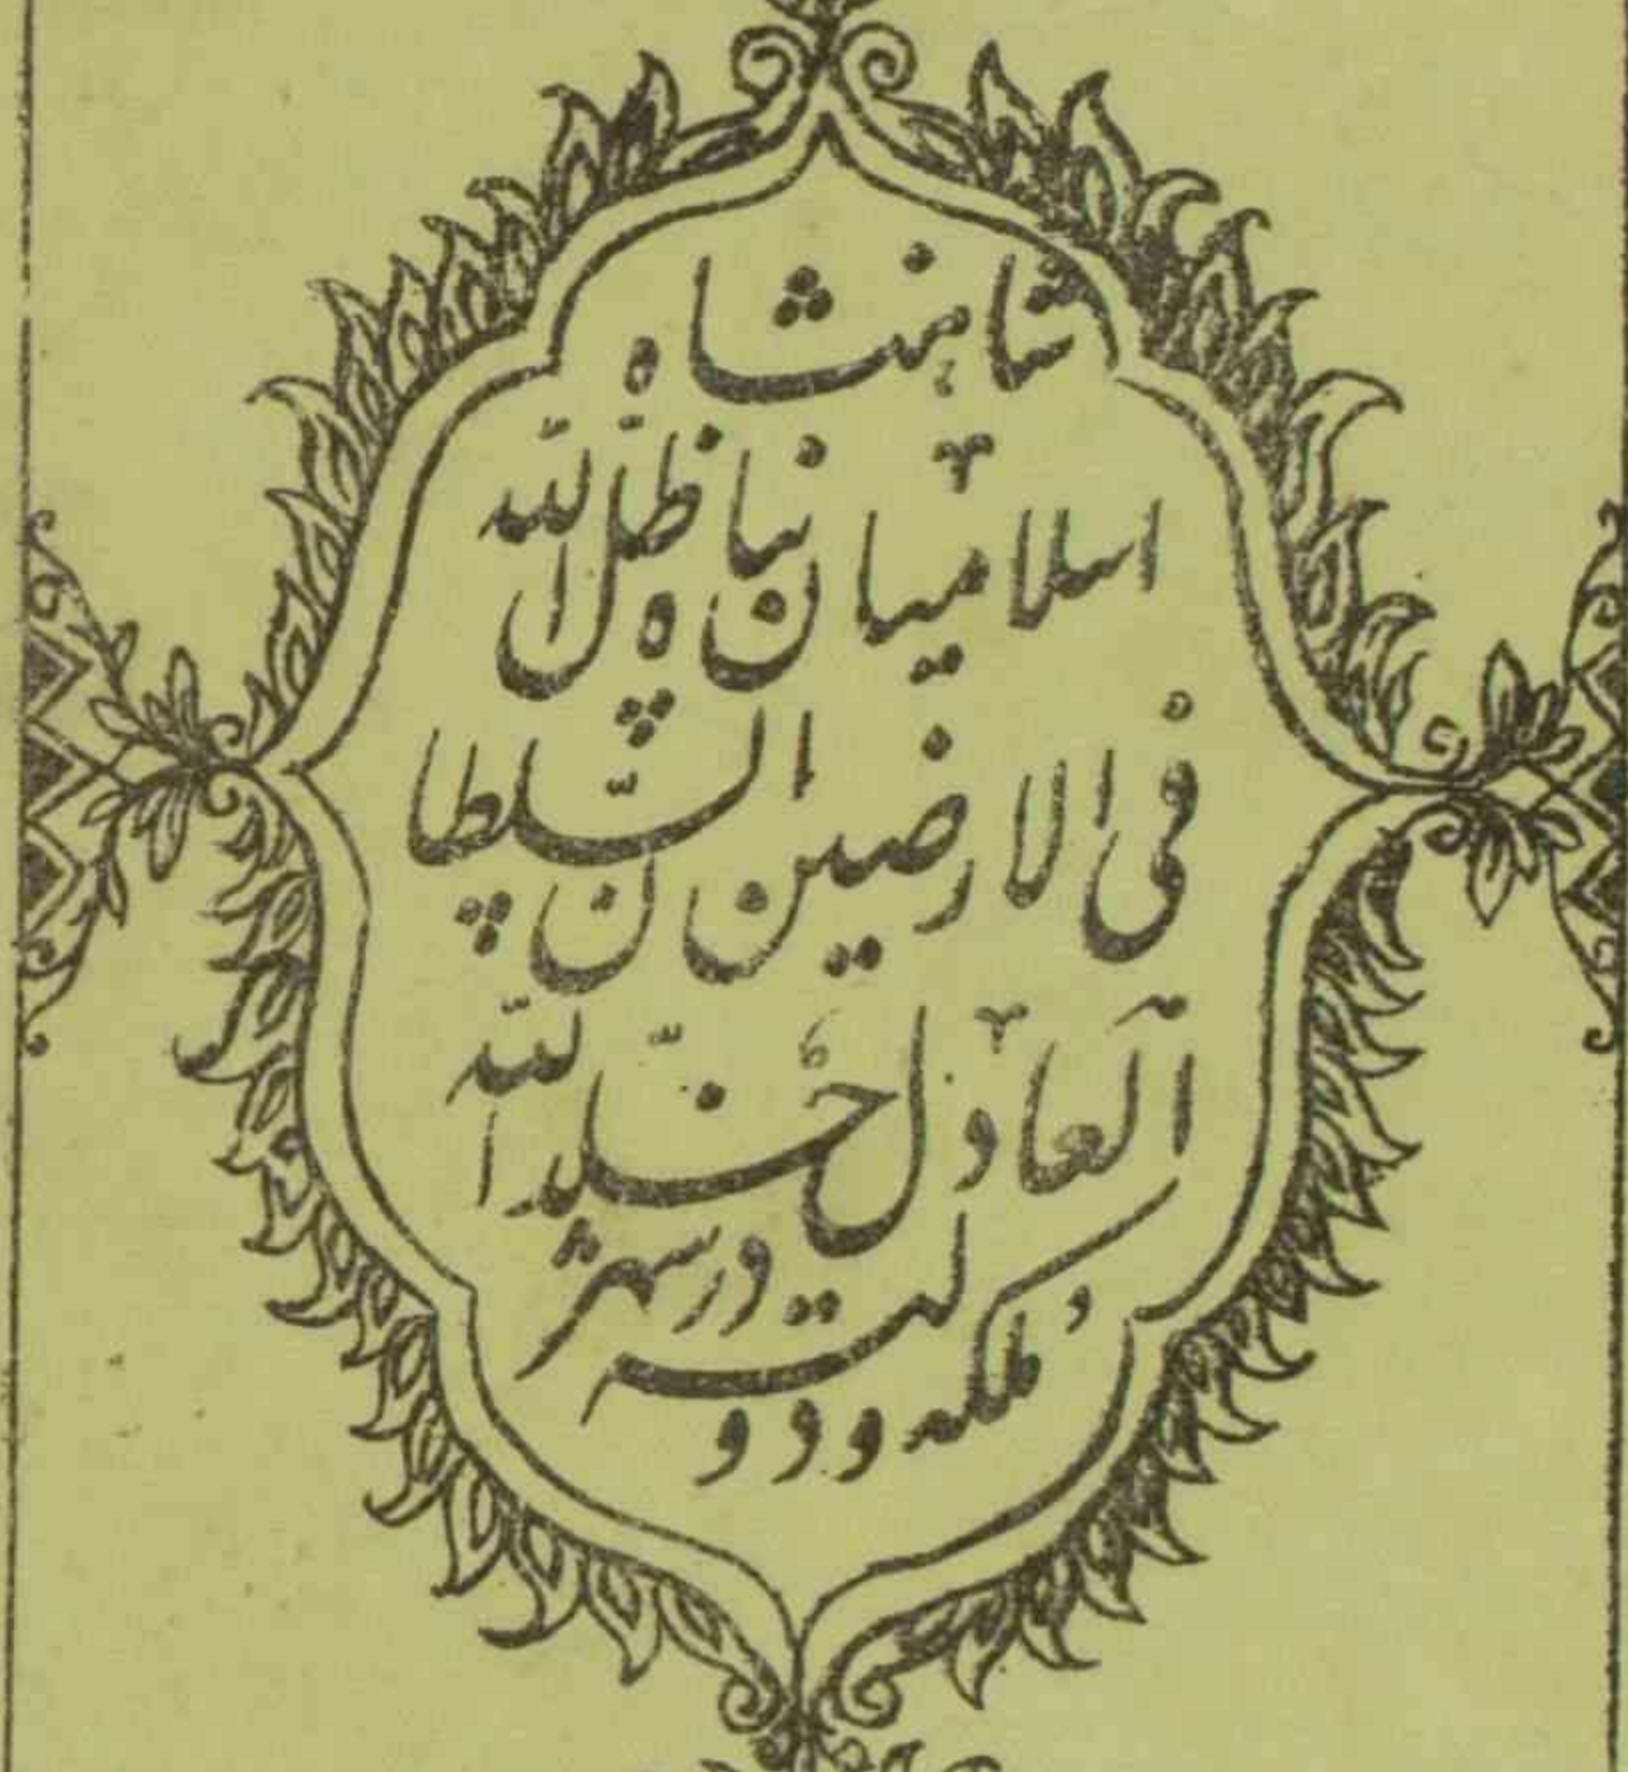 شاهنشاه
اسلامیان پناه ظلّ اللّه
فی الارضین السّلطان
العادل خلّد اللّه
ملکه و دولته در شهر